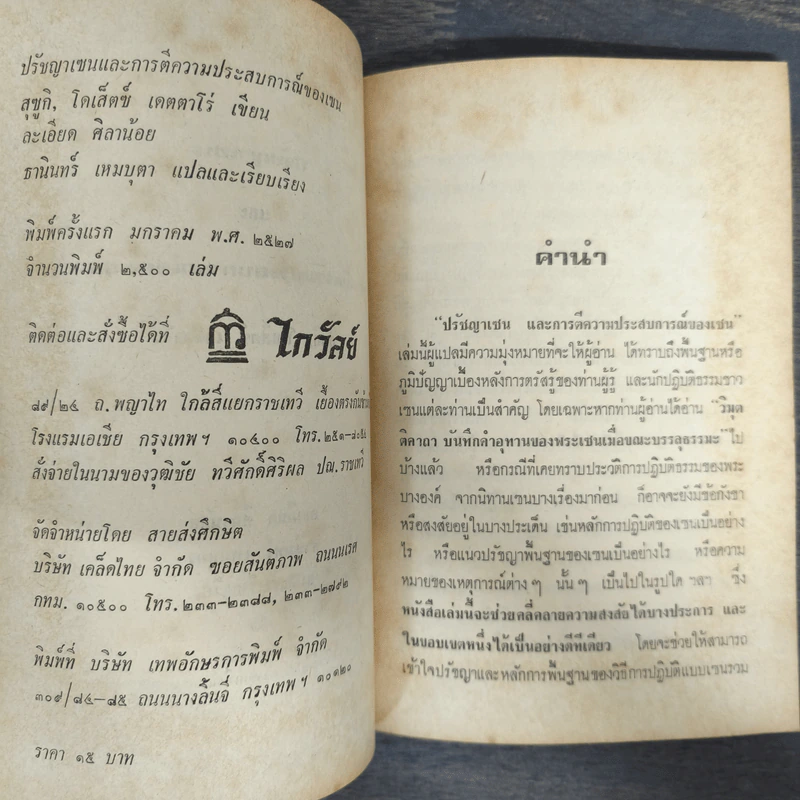 ปรัชญาเซนและการตีความประสบการณ์ของเซน
สุซูกิ, ไดเส็ตซ์ เตตตาโร่ เขียน
ละเอียด ศิลาน้อย
ธานินทร์ เหมบุตา แปลและเรียบเรียง
พิมพ์ครั้งแรก มกราคม พ.ศ. ๒๕๒๗
จำนวนพิมพ์ ๒,๕๐๐ เล่ม
ติดต่อและสั่งซื้อได้ที่ ไกวัลย์
๘๙/๒๔ ถ.พญาไท ใกล้สี่แยกราชเทวี เยื้องตรงกันข้าม
โรงแรมเอเชีย กรุงเทพฯ ๑๐๔๐๐ โทร.
สั่งจ่ายในนามของวุฒิชัย ทวีศักดิ์ศิริผล ปณ.ราชเทวี
จัดจำหน่ายโดย สายส่งศึกษิต
บริษัท เคล็ดไทย จำกัด ซอยสันติภาพ ถนนนเรศ
กทม. ๑๐๕๐๐ โทร. ๒๓๓-๒๓๘๘, ๒๓๓-๒๗๙๒
พิมพ์ที่ บริษัท เทพอักษรการพิมพ์ จำกัด
๓๐๙/๘๔-๘๕ ถนนนางลิ้นจี่ กรุงเทพฯ ๑๐๑๒๐
ราคา ๑๕ บาท
คำนำ
“ปรัชญาเซน และการตีความประสบการณ์ของเซน”
เล่มนี้ผู้แปลมีความมุ่งหมายที่จะให้ผู้อ่าน ได้ทราบถึงพื้นฐานหรือ
ภูมิปัญญาเบื้องหลังการตรัสรู้ของท่านผู้รู้ และนักปฏิบัติธรรมชาว
เซนแต่ละท่านเป็นสำคัญ โดยเฉพาะหากท่านผู้อ่านได้อ่าน “วิมุต
ติคาถา บันทึกคำอุทานของพระเซนเมื่อขณะบรรลุธรรมะ” ไป
บ้างแล้ว หรือกรณีที่เคยทราบประวัติการปฏิบัติธรรมของพระ
บางองค์ จากนิทานเซนบางเรื่องมาก่อน ก็อาจจะยังมีข้อกังขา
หรือสงสัยอยู่ในบางประเด็น เช่นหลักการปฏิบัติของเซนเป็นอย่าง
ไร หรือแนวปรัชญาพื้นฐานของเซนเป็นอย่างไร หรือความ
หมายของเหตุการณ์ต่าง ๆ นั้น ๆ เป็นไปในรูปใด ฯลฯ ซึ่ง
หนังสือเล่มนี้จะช่วยคลี่คลายความสงสัยได้บางประการ และ
ในขอบเขตหนึ่งได้เป็นอย่างดีทีเดียว โดยจะช่วยให้สามารถ
เข้าใจปรัชญาและหลักการพื้นฐานของวิธีการปฏิบัติแบบเซนรวม